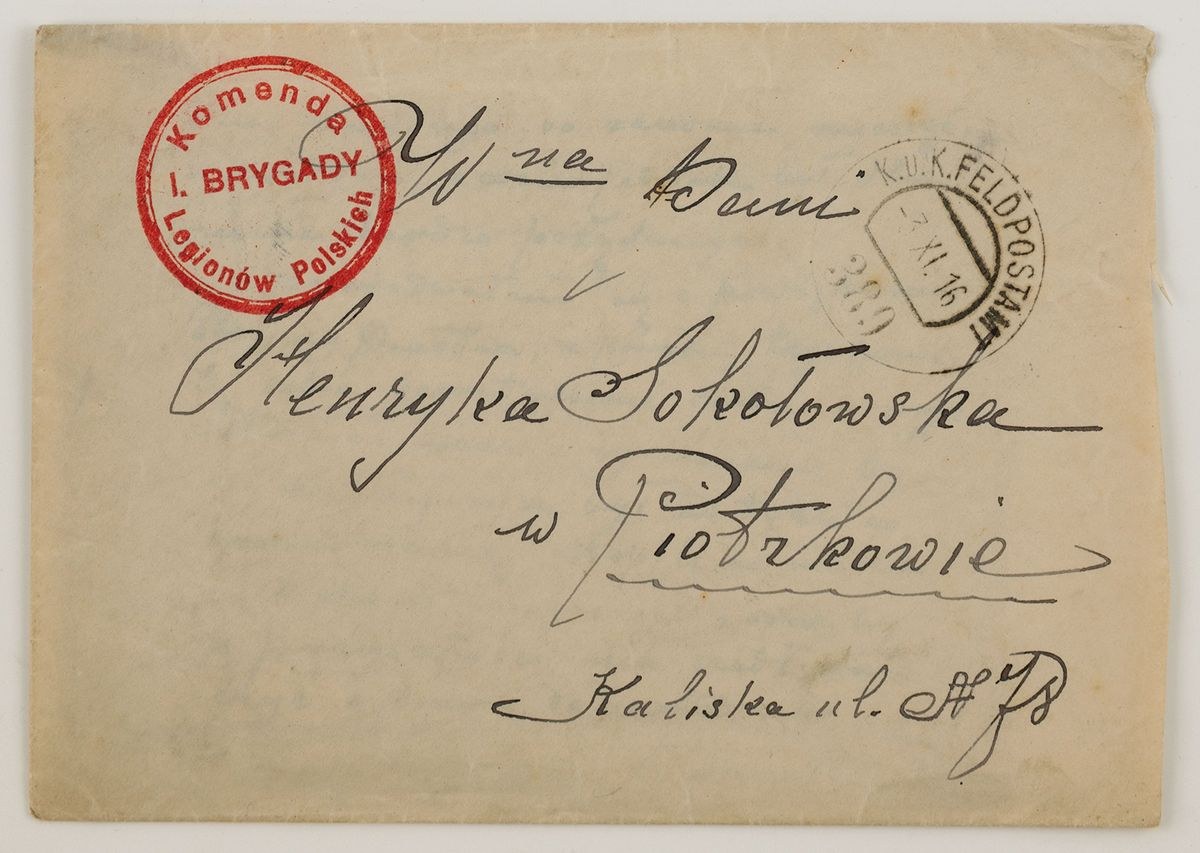 Komenda
I. BRYGADY
Legionów Polskich
K.u.K. FELDPOSTAMT
XI. 16
389
Wna Pani
Henryka Sokołowska
w Piotrkowie
Kaliska ul. №